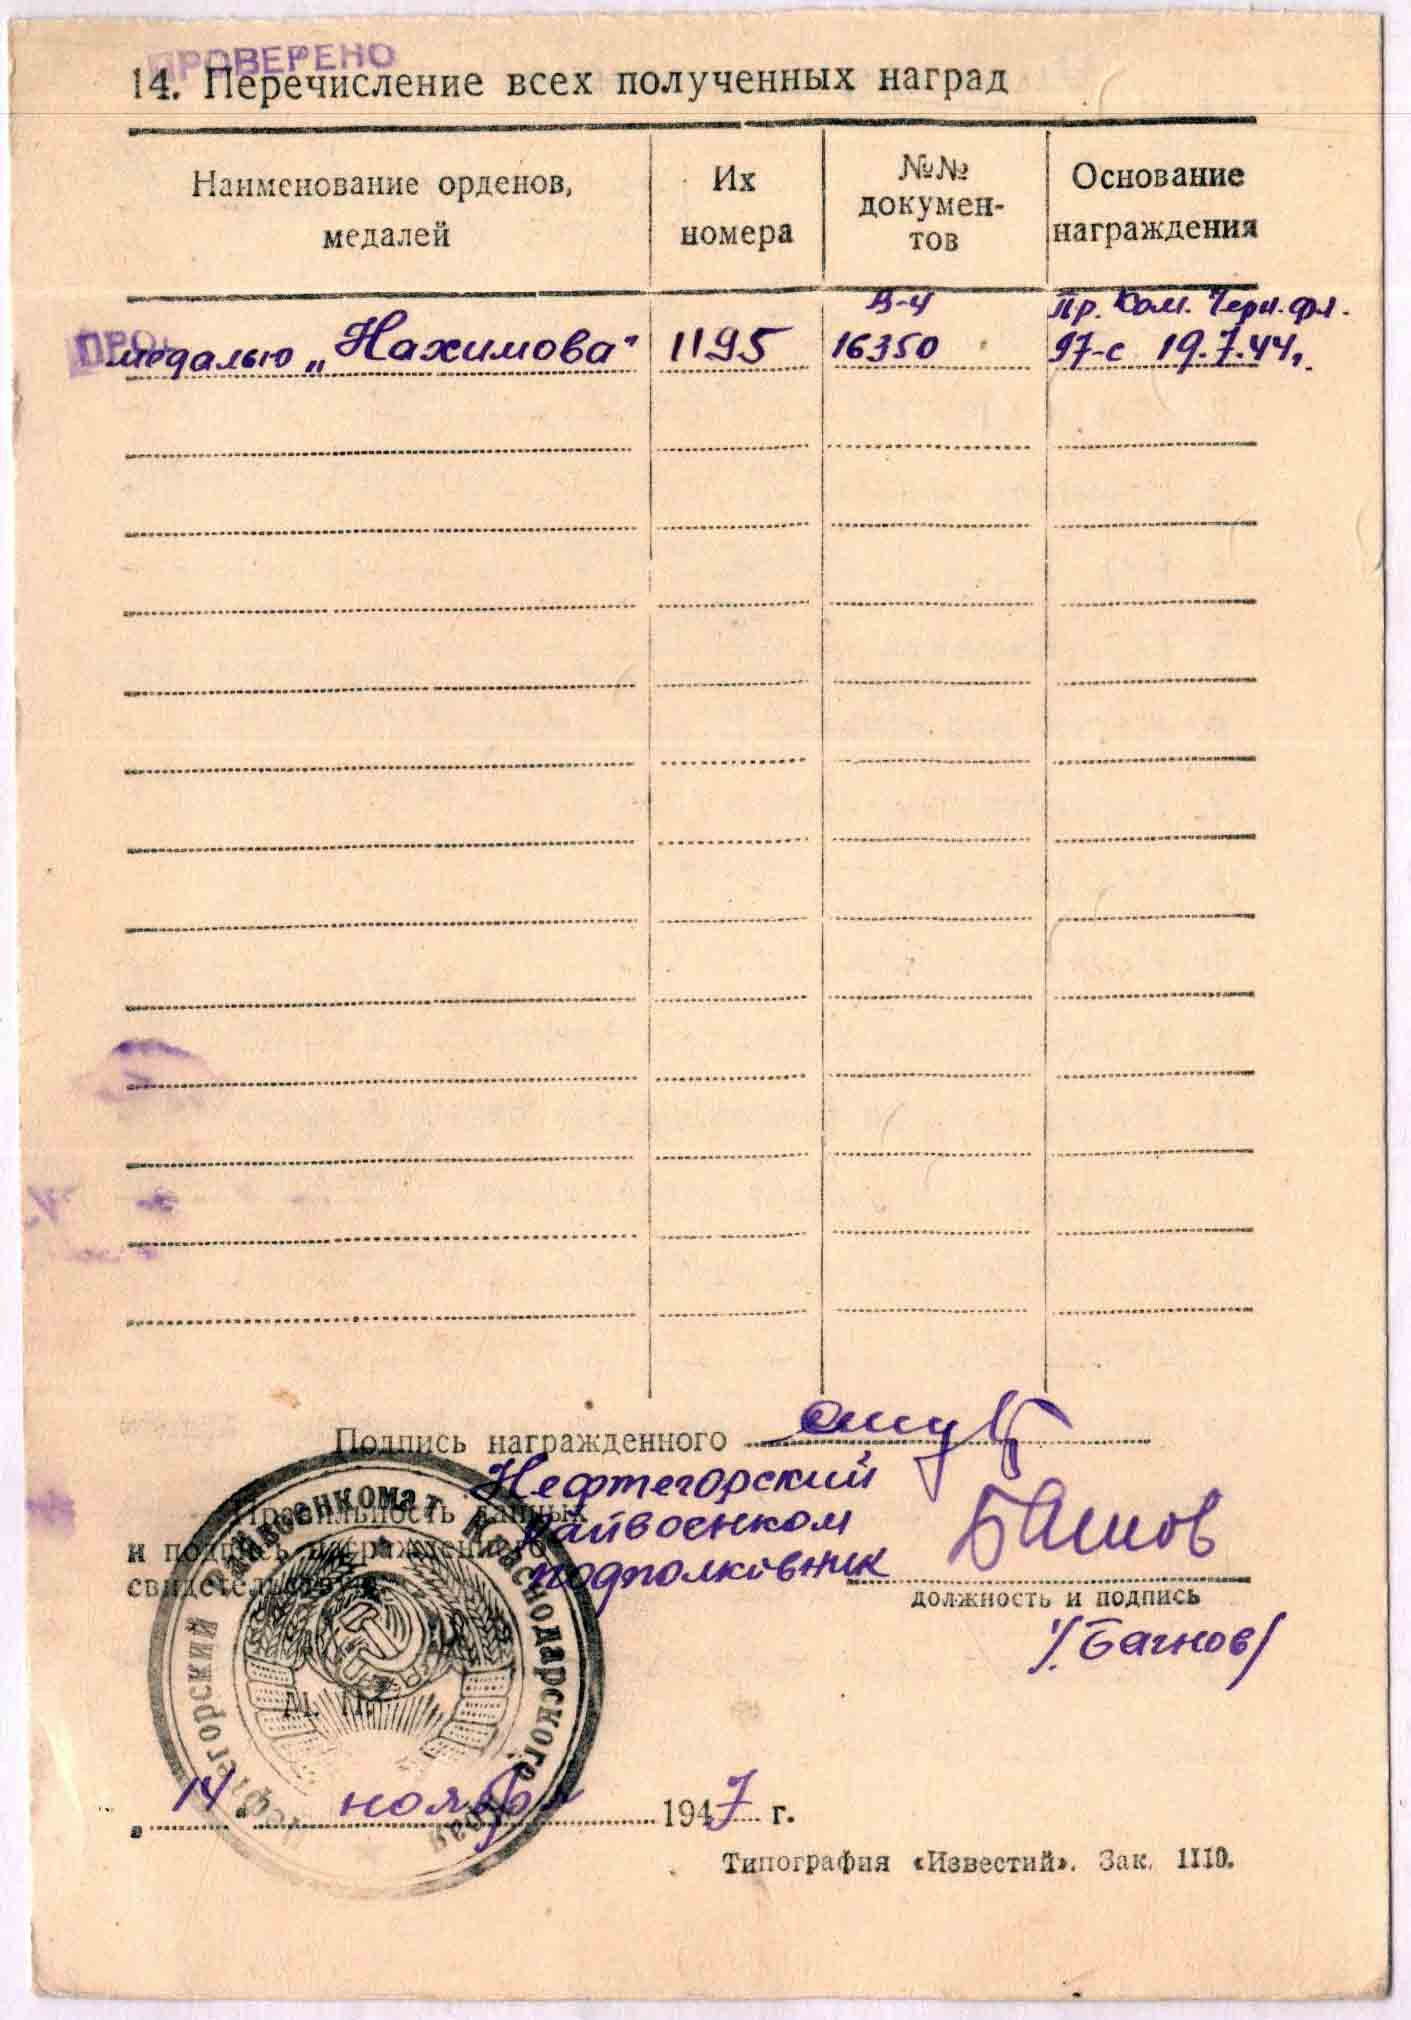 ПРОВЕРЕНО
14. Перечисление всех полученных наград
Наименование орденов, медалей
Их номера
№№ докумен-тов
Основание награждения
ПРО
медалью „Нахимова" 1195 В-Ч 16350 Пр. Ком. Черн. фл. 97-с 19.7.44,
Подпись награжденного
Правильность данных
и подпись награжденного
свидетельствую
Нефтегорский
райвоенком
подполковник
должность и подпись
/Багнов/
М. П.
Нефтегорский Райвоенкомат Краснодарского края
„14" ноября 1947 г.
Типография «Известий». Зак. 1110.